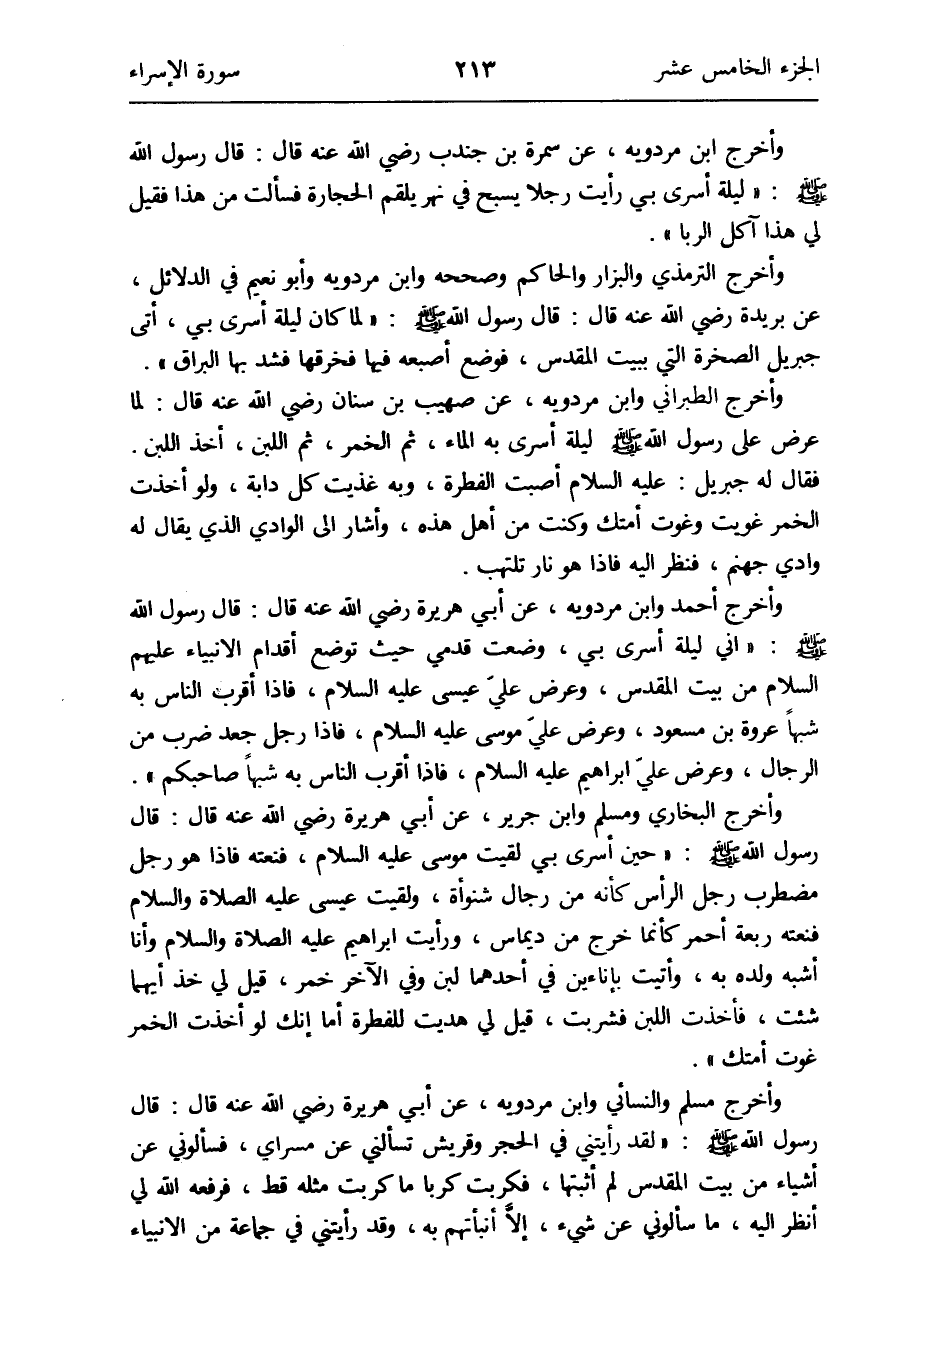 الجزء الخامس عشر ٢١٣ سورة الإسراء
وأخرج ابن مردويه ، عن سمرة بن جندب رضي الله عنه قال : قال رسول الله
ﷺ : « ليلة أسرى بي رأيت رجلا يسبح في نهر يلقم الحجارة فسألت من هذا فقيل
لي هذا آكل الربا » .
وأخرج الترمذي والبزار والحاكم وصححه وابن مردويه وأبو نعيم في الدلائل ،
عن بريدة رضي الله عنه قال : قال رسول الله ﷺ : « لما كان ليلة أسرى بي ، أتى
جبريل الصخرة التي ببيت المقدس ، فوضع أصبعه فيها فخرقها فشد بها البراق » .
وأخرج الطبراني وابن مردويه ، عن صهيب بن سنان رضي الله عنه قال : لما
عرض على رسول الله ﷺ ليلة أسرى به الماء ، ثم الخمر ، ثم اللبن ، أخذ اللبن .
فقال له جبريل : عليه السلام أصبت الفطرة ، وبه غذيت كل دابة ، ولو أخذت
الخمر غويت وغوت أمتك وكنت من أهل هذه ، وأشار الى الوادي الذي يقال له
وادي جهنم ، فنظر اليه فاذا هو نار تلتهب .
وأخرج أحمد وابن مردويه ، عن أبي هريرة رضي الله عنه قال : قال رسول الله
ﷺ : « اني ليلة أسرى بي ، وضعت قدمي حيث توضع أقدام الانبياء عليهم
السلام من بيت المقدس ، وعرض عليّ عيسى عليه السلام ، فاذا أقرب الناس به
شبهاً عروة بن مسعود ، وعرض عليّ موسى عليه السلام ، فاذا رجل جعد ضرب من
الرجال ، وعرض عليّ ابراهيم عليه السلام ، فاذا أقرب الناس به شبهاً صاحبكم » .
وأخرج البخاري ومسلم وابن جرير ، عن أبي هريرة رضي الله عنه قال : قال
رسول الله ﷺ : « حين أسرى بي لقيت موسى عليه السلام ، فنعته فاذا هو رجل
مضطرب رجل الرأس كأنه من رجال شنوأة ، ولقيت عيسى عليه الصلاة والسلام
فنعته ربعة أحمر كأنما خرج من ديماس ، ورأيت ابراهيم عليه الصلاة والسلام وأنا
أشبه ولده به ، وأتيت بإناءين في أحدهما لبن وفي الآخر خمر ، قيل لي خذ أيهما
شئت ، فأخذت اللبن فشربت ، قيل لي هديت للفطرة أما إنك لو أخذت الخمر
غوت أمتك » .
وأخرج مسلم والنسائي وابن مردويه ، عن أبي هريرة رضي الله عنه قال : قال
رسول الله ﷺ : « لقد رأيتني في الحجر وقريش تسألني عن مسراي ، فسألوني عن
أشياء من بيت المقدس لم أثبتها ، فكربت كربا ما كربت مثله قط ، فرفعه الله لي
أنظر اليه ، ما سألوني عن شيء ، إلاَّ أنبأتهم به ، وقد رأيتني في جماعة من الانبياء